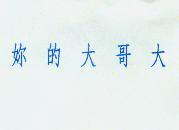 妳的大哥大